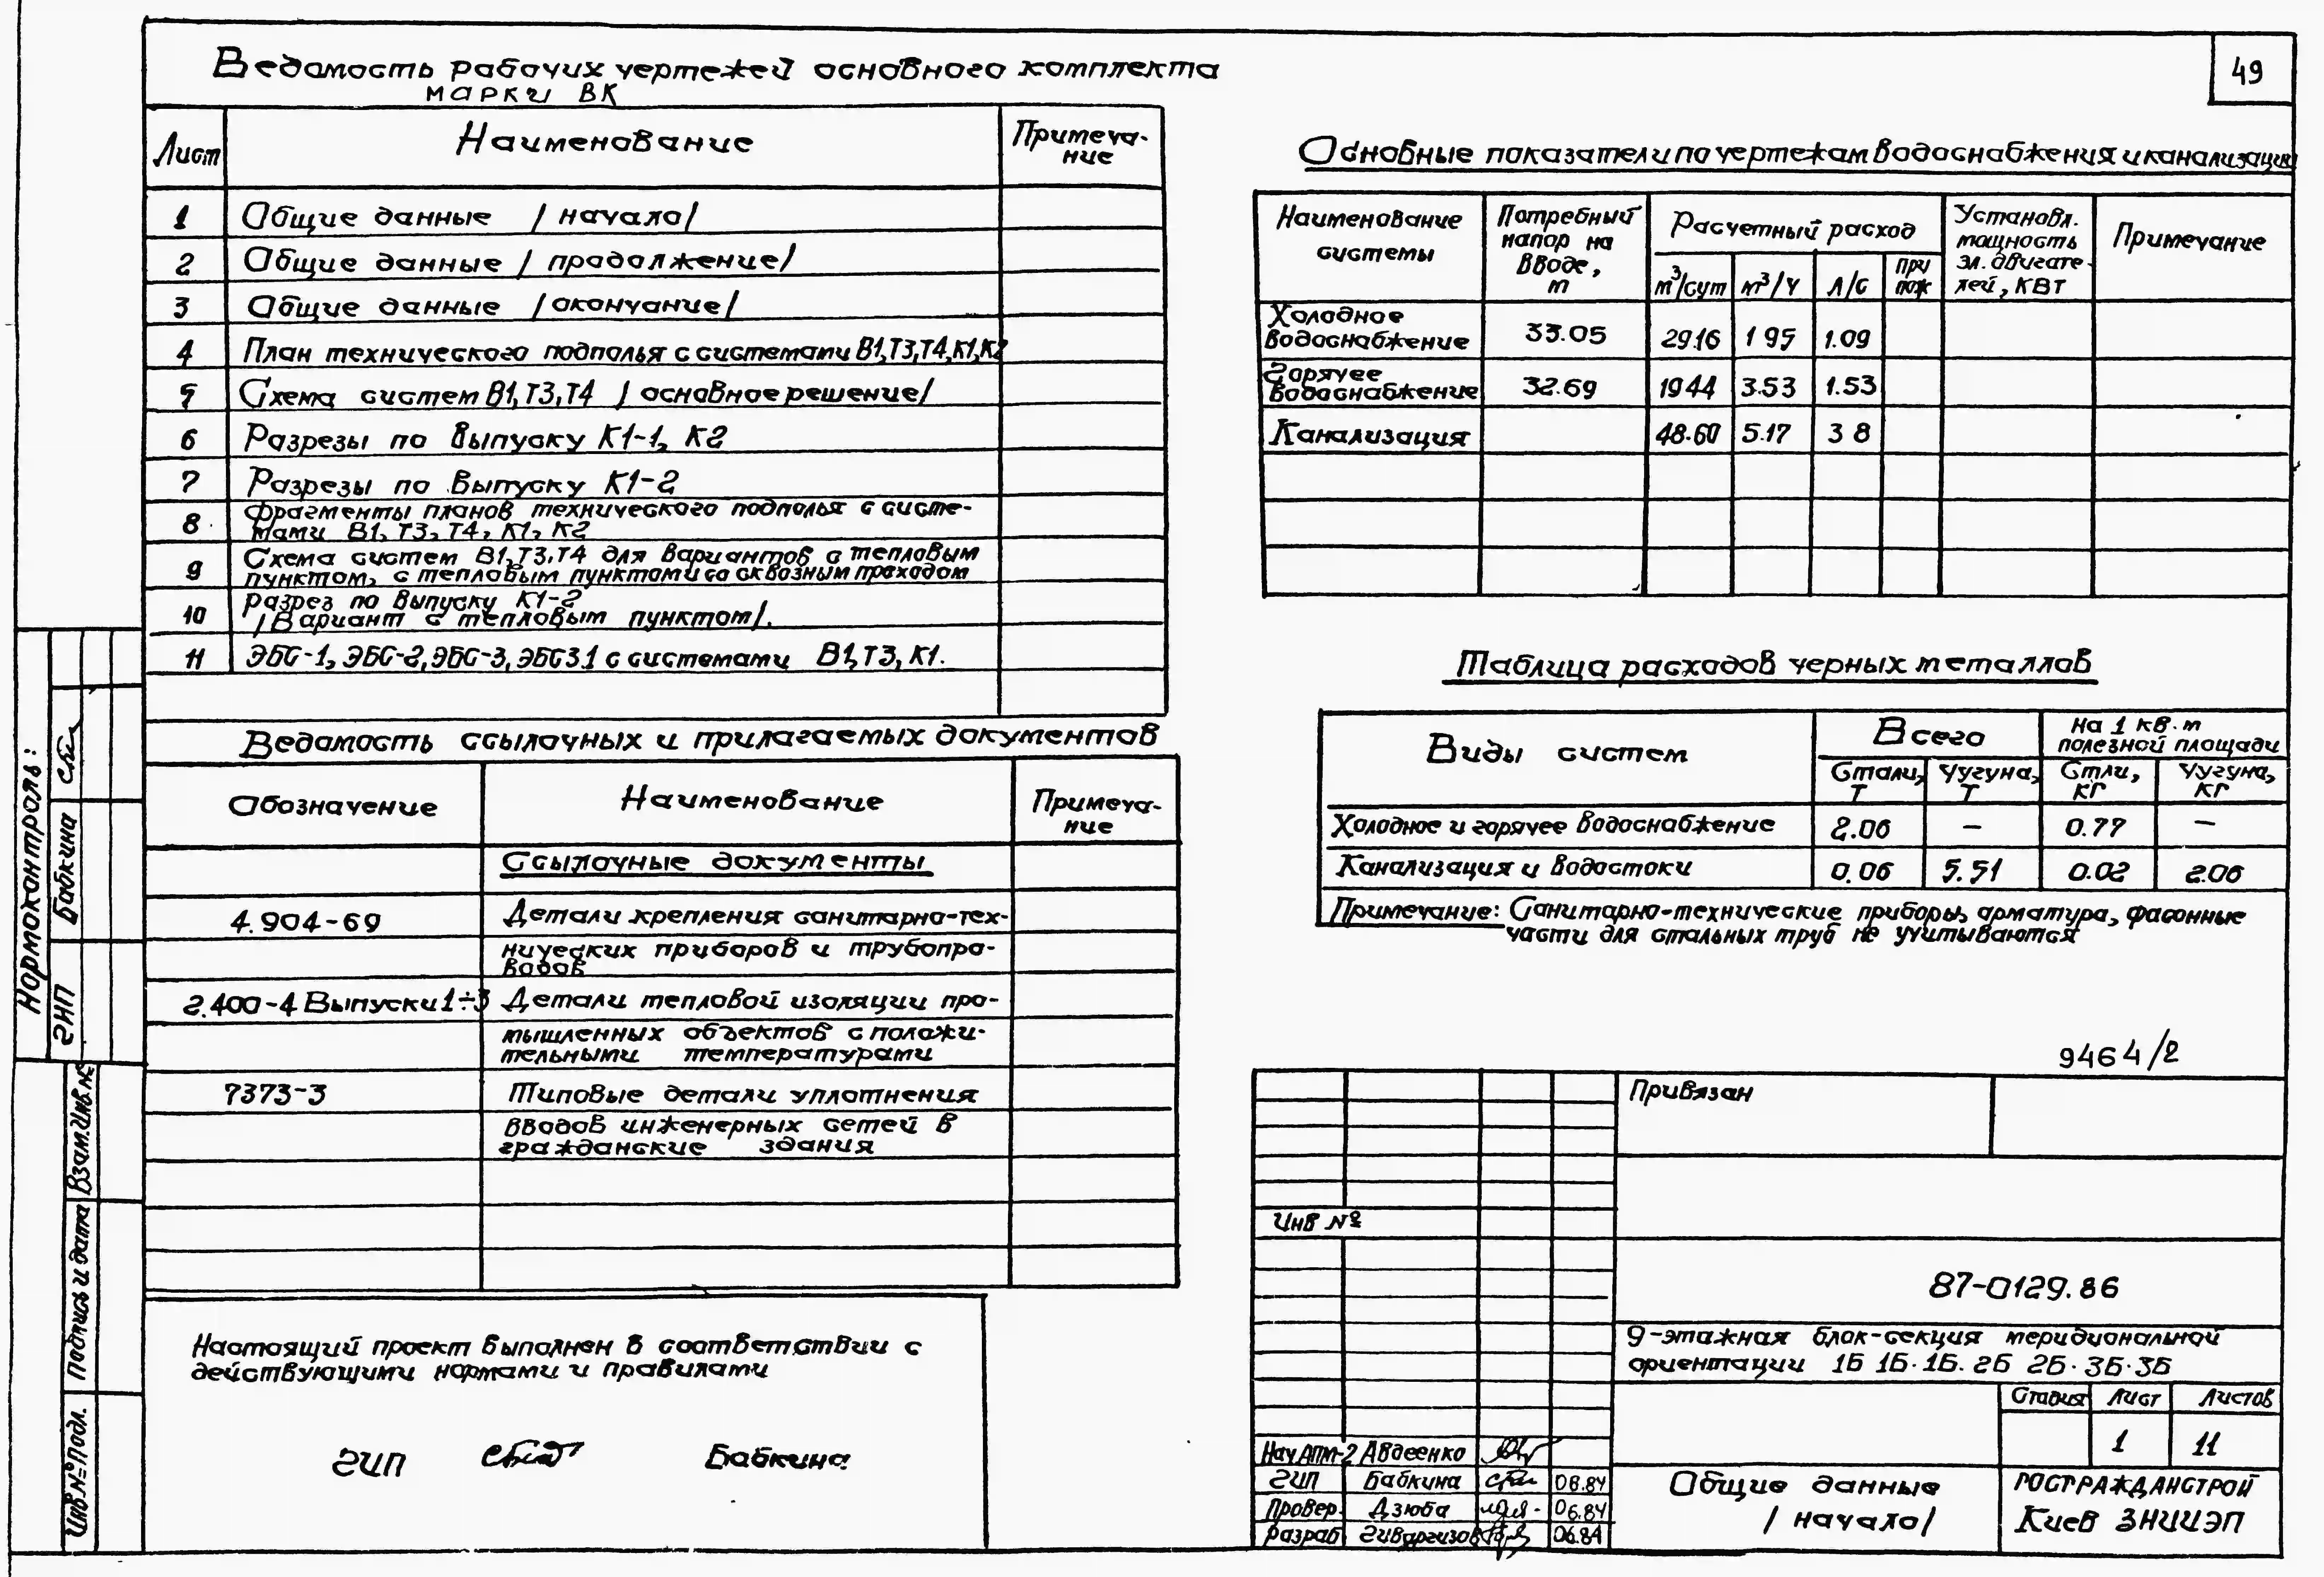 49
Ведомость рабочих чертежей основного комплекта
марки ВК
Лист Наименование Примеча-
ние
1 Общие данные /начало/
2 Общие данные /продолжение/
3 Общие данные /окончание/
4 План технического подполья с системами В1,Т3,Т4,К1,К2
5 Схема систем В1,Т3,Т4 /основное решение/
6 Разрезы по выпуску К1-1, К2
7 Разрезы по выпуску К1-2
8 Фрагменты планов технического подполья с систе-
мами В1, Т3, Т4, К1, К2
9 Схема систем В1,Т3,Т4 для вариантов с тепловым
пунктом, с тепловым пунктом и со сквозным проходом
10 Разрез по выпуску К1-2
/Вариант с тепловым пунктом/.
11 ЭБС-1, ЭБС-2, ЭБС-3, ЭБС3.1 с системами В1,Т3,К1.
Ведомость ссылочных и прилагаемых документов
Обозначение Наименование Примеча-
ние
Ссылочные документы
4.904-69 Детали крепления санитарно-тех-
нических приборов и трубопро-
водов
2.400-4 Выпуски 1÷3 Детали тепловой изоляции про-
мышленных объектов с положи-
тельными температурами
7373-3 Типовые детали уплотнения
вводов инженерных сетей в
гражданские здания
Настоящий проект выполнен в соответствии с
действующими нормами и правилами
ГИП Бабкина
Основные показатели по чертежам водоснабжения и канализации
Наименование системы Потребный напор на вводе, м Расчетный расход Установл. мощность эл. двигате-лей, КВт Примечание
м³/сут м³/ч л/с при пож
Холодное водоснабжение 33.05 29.16 1 95 1.09
Горячее водоснабжение 32.69 1944 3.53 1.53
Канализация 48.60 5.17 3 8
Таблица расходов черных металлов
Виды систем Всего На 1 кв.м полезной площади
Стали, Т Чугуна, Т Стли, КГ Чугуна, КГ
Холодное и горячее водоснабжение 2.06 – 0.77 –
Канализация и водостоки 0.06 5.51 0.02 2.06
Примечание: Санитарно-технические приборы, арматура, фасонные
части для стальных труб не учитываются
9464/2
Привязан
Инв №
87-0129.86
9-этажная блок-секция меридиональной
ориентации 1Б 1Б·1Б.2Б 2Б·3Б·3Б
Стадия Лист Листов
1 11
Нач АПМ-2 Авдеенко
ГИП Бабкина 06.84
Провер. Дзюба 06.84
Разраб. Гиваргизов 06.84
Общие данные
/начало/
ГОСГРАЖДАНСТРОЙ
Киев ЗНИИЭП
Нормоконтроль:
ГИП Бабкина
Взам.Инв.№
Подпись и дата
Инв.№ Подл.